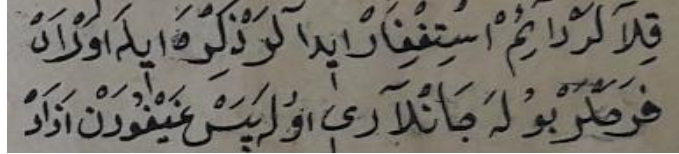 قِلاَلَرْ دَايِمُ اسْتِغْفَارْ ايدَا لَرْ ذِكِرَه ايلَه اوْرَادْ
فَرَحْلَرْ بُولَه جَانْلاَرِي اوُلَه پَسْ غَيْغُودَنْ اَزَادْ